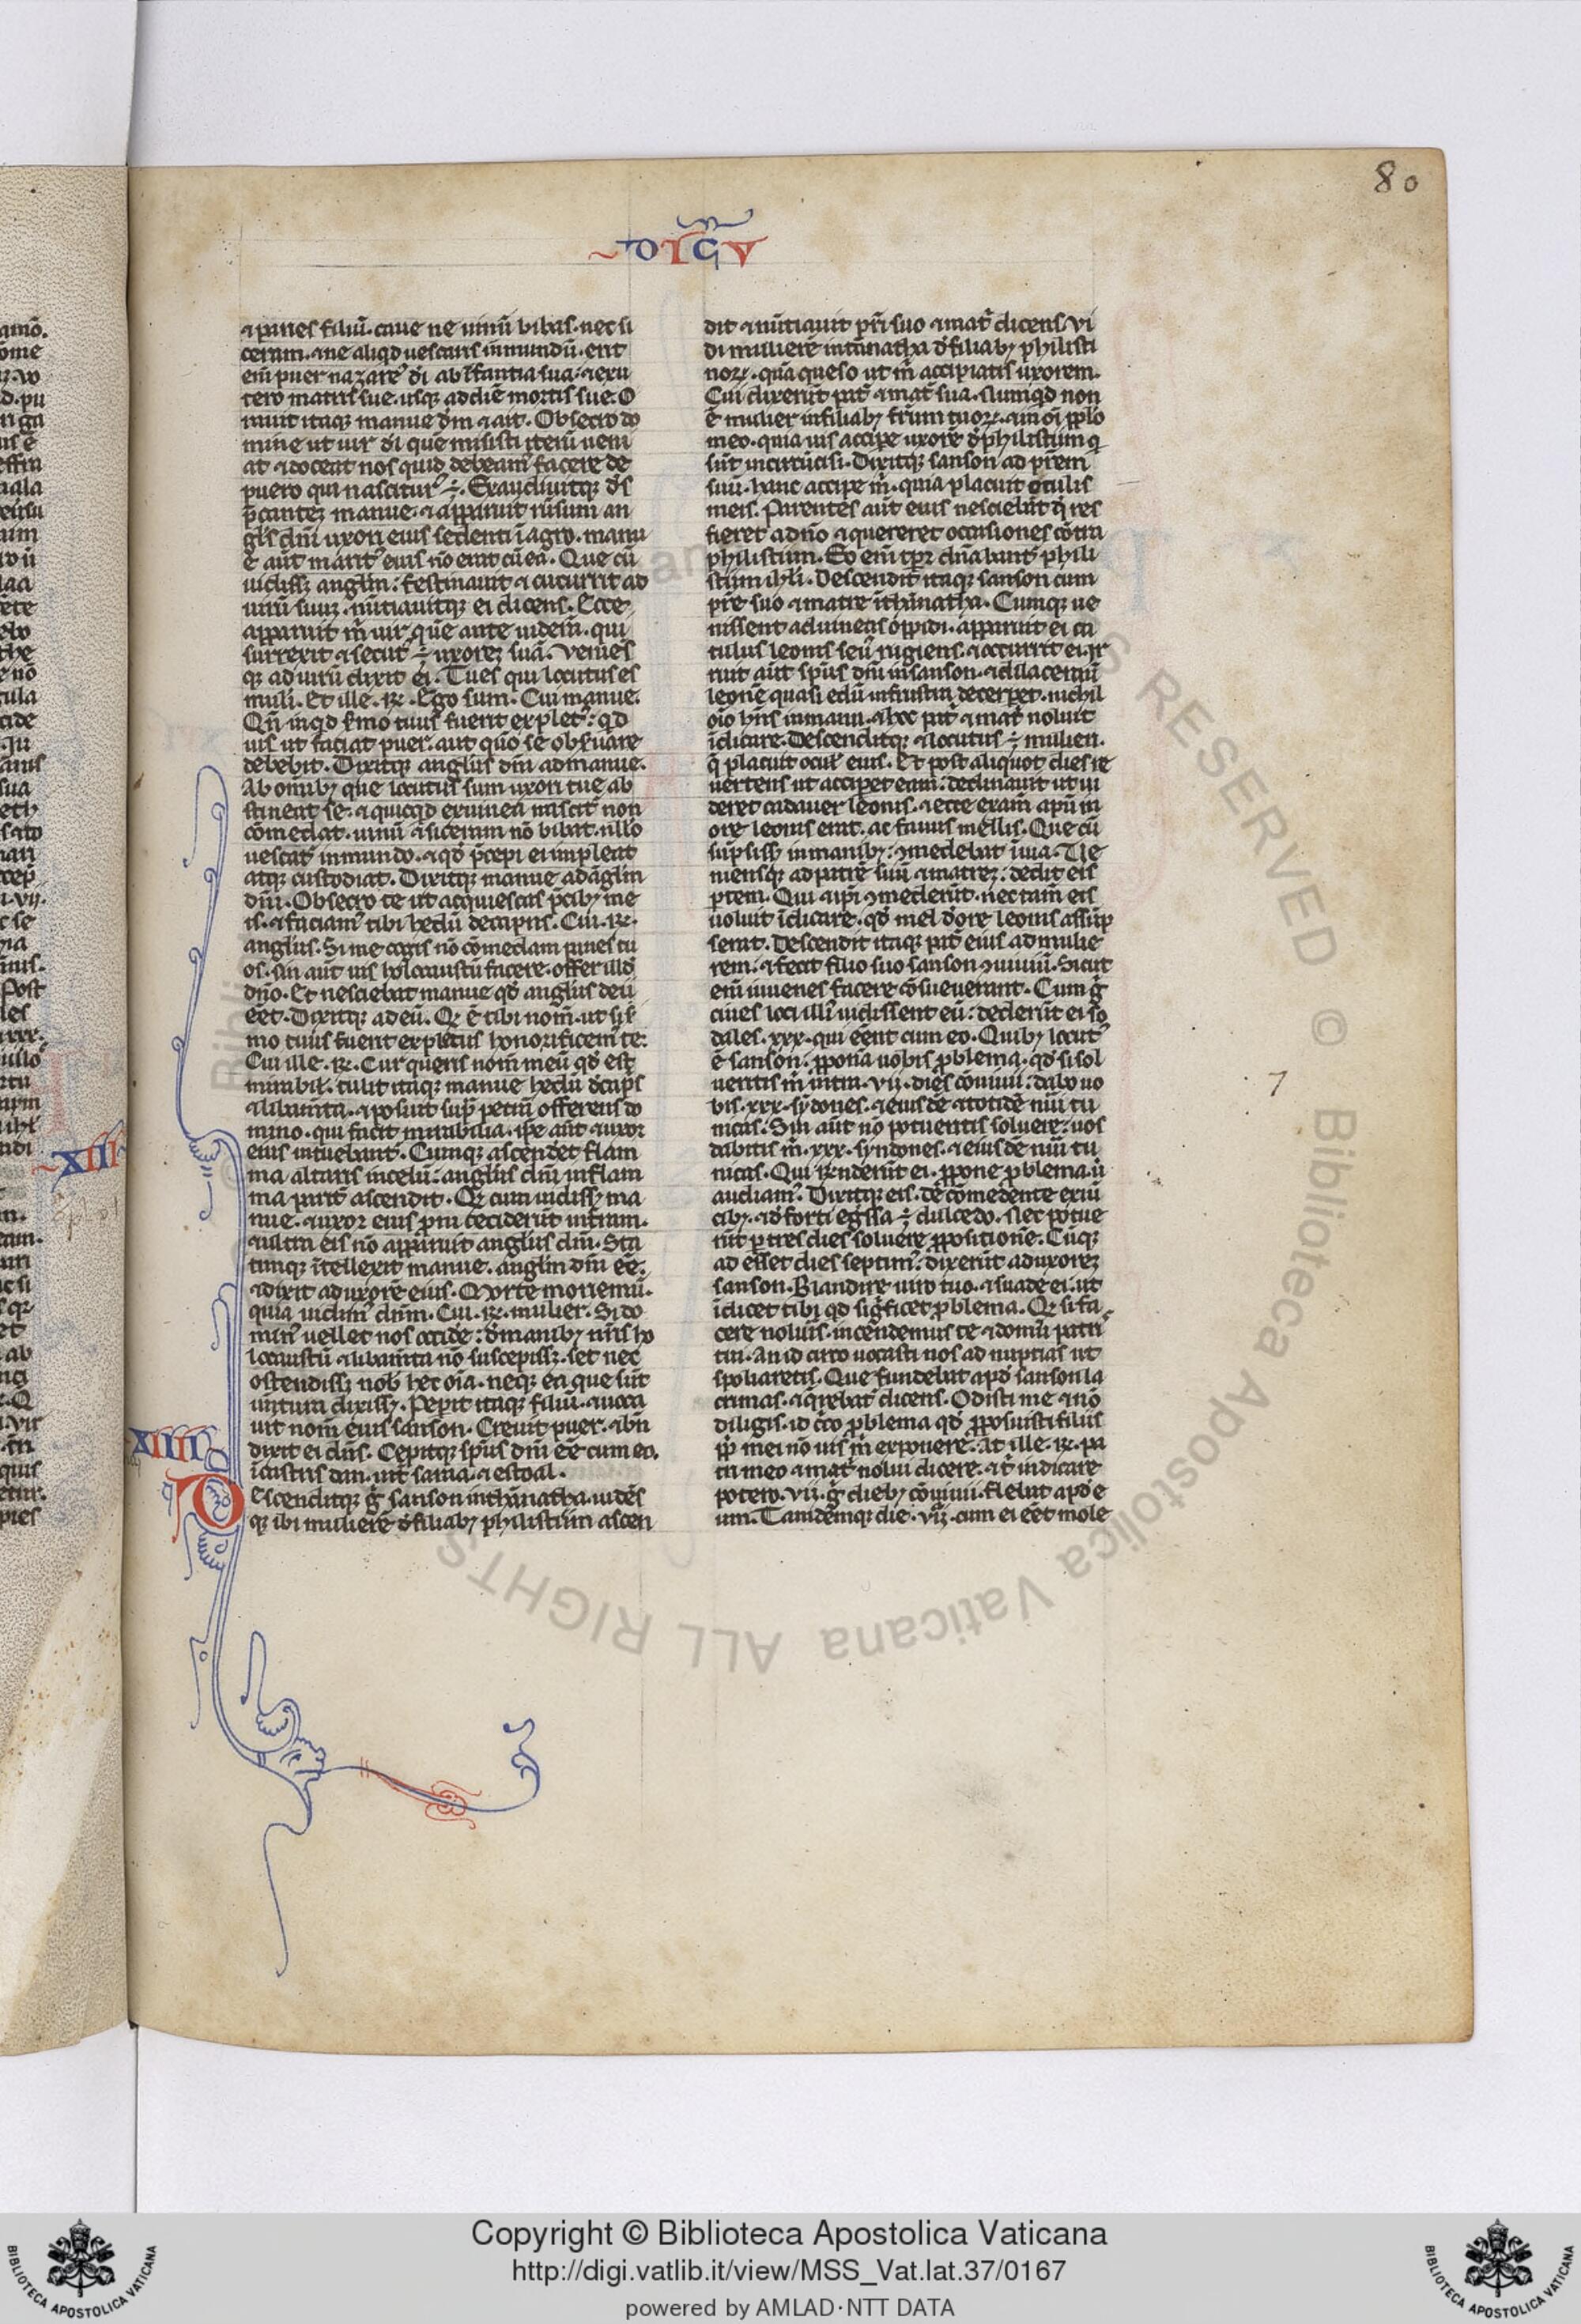 80
DICV
⁊ paries filiū. caue ne uinū bibas. nec si
ceram. ⁊ ne aliqd uescaris inmundū. erit
eī puer nazare' di ab īfantia sua. ⁊ exu
tero matris sue. usq; ad diē mortis sue. O
rauit itaq; manue dm̄ ⁊ ait. Obsecro do
mine ut uir di quē misisti iterū ueni
at ⁊ doceat nos quid debeam' facere de
puero qui nascitur' ÷. Exaudiuitq; ds̄
p̄cantez manue. ⁊ apparuit rūsum an
gls̄ dn̄i uxori eius sedenti ī agro. manu
e aūt marit' eius nō erat cū ea. Que cū
uidiss; angl̄m. festinauit ⁊ cucurrit ad
uirū suuz. nūtiauitq; ei dicens. Ecce
apparuit m̄ uir quē ante uidera. qui
surrexit ⁊ secut' ÷ uxorez suā. Veniēs
q; ad uirū dixit ei. Tu es qui locutus es
muli. Et ille. ꝶ. Ego sum. Cui manue.
Qn̄ inqd s̄mo tuus fuerit explet'. qd
uis ut faciat puer. aut quo se obs̄uare
debebit. Dixitq; angl̄us dn̄i ad manue.
Ab omīb; que locutus sum uxori tue ab
stineat se. ⁊ quicqd ex uinea nascit' non
cōmedat. uinū ⁊ siceram nō bibat. nllo
uescat' inmundo. ⁊ qd' p̄cepi ei impleat
atq; custodiat. Dixitq; manue ad āglm
dn̄i. Obsecro te ut acquiescas p̄cib; me
is. ⁊ faciam' tibi hedū de capris. Cui. ꝶ.
angl̄us. Si me cogis nō cōmedam panes tu
os. sin aūt uis holocaustū facere. offer illd'
dn̄o. Et nesciebat manue qd' angl̄us dei
eēt. Dixitq; ad eū. Qd' ē tibi nom̄. ut si s̄
mo tuus fuerit expletus honorificem' te.
Cui ille. ꝶ. Cur queris nom̄ meū qd' est
mirabile. tulit itaq; manue hedū d' cap̄s
⁊ libam̄ta. ⁊ posuit sup̄ petrā offerens do
mino. qui facit mirabilia. ip̄e aūt ⁊ uxor
eius intuebant'. Cumq; ascendet flam
ma altaris in celū. angl̄us dn̄i in flam
ma parit' ascendit. Qd' cum uidiss; ma
nue. ⁊ uxor eius p̄ni ceciderūt in t̄ram.
⁊ ultra eis nō apparuit angl̄us dn̄i. Sta
timq; ītellexit manue. angl̄m dn̄i eē.
⁊ dixit ad uxorē eius. Morte moriemur.
quia uidim' dm̄. Cui. ꝶ. mulier. Si do
min' uellet nos occide'. d' manib; nr̄is ho
locaustū ⁊ libam̄ta nō suscepiss;. set nec
ostendiss; nob' hec oīa. neq; ea que sūt
uentura dixiss;. Peperit itaq; filiū. ⁊ uoca
uit nom̄ eius sanson. Creuit puer. ⁊ bn̄
dixit ei dn̄s. Cepitq; sp̄us dn̄i eē cum eo.
ī castris dan. int' saraa. ⁊ estoal.
XIIII
Descenditq; g̊ sanson in thānatha. uidēs
q; ibi mulierē d' filiab; philistiim ascen
dit ⁊ nūtiauit pr̄i suo ⁊ mat̄ dicens. Vi
di mulierē in tānatha d' filiab; philisti
noꝝ. quā queso ut m̄ accipiatis uxorem.
Cui dixerūt pat̄ ⁊ mat̄ sua. Nūmqd non
ē mulier in filiab; fr̄um tuoꝝ. ⁊ in oī pp̄lo
meo. quia uis accipe uxorē d' philistiim q
sūt incircūcisi. Dixitq; sanson ad pr̄em
suū. hanc accipe m̄. quia placuit oculis
meis. Parentes aūt eius nesciebāt q̄ res
fieret a dn̄o ⁊ quereret occasiones cōtra
philistiim. Eo em̄ tp̄r dn̄abant' phili
stiim isrl'i. Descendit itaq; sanson cum
pr̄e suo ⁊ matre ī thānatha. Cumq; ue
nissent ad uineas oppidi. apparuit ei ca
tulus leonis seu' rugiens. ⁊ occurrit ei. ir
ruit aūt sp̄us dn̄i in sanson. ⁊ dilacerauit
leonē quasi edū in frusta decerpet. nichil
oīo hn̄s in manu. ⁊ hoc pat̄ ⁊ mat̄ noluit
īdicare. Descenditq; ⁊ locutus ÷ mulieri.
q̄ placuit ocul' eius. Et post aliquot dies re
uertens ut acciperet eam. declinauit ut ui
deret cadauer leonis. ⁊ ecce examē apū in
ore leonis erat. ac fauus mellis. Que cū
sūpsiss; in manib;. ꝯmedebat ī uia. Ve
niensq; ad patrē suū ⁊ matrez. dedit eis
ptem. Qui ⁊ ipi ꝯmederūt. nec tam̄ eis
uoluit īdicare. qd' mel d' ore leonis assūp
serat. Descendit itaq; pat̄ eius ad mulie
rem. ⁊ fecit filio suo sanson ꝯuiuiū. Sicut
em̄ iuuenes facere cōsueuerant. Cum g̊
ciues loci illi' uidissent eū. dederūt ei so
dales. xxx. qui eēnt cum eo. Quib; locut'
ē sanson. ꝓponā uobis ꝓblema. qd' si sol
ueritis m̄ intra. vii. dies cōuiuii. dabo uo
bis. xxx. sȳdones. ⁊ eiusdē ⁊ totidē nūi tu
nicas. Sin aūt nō potueritis soluere. uos
dabitis m̄. xxx. syndones. ⁊ eiusdē nūi tu
nicas. Qui ꝶnderūt ei. ꝓpone ꝓblema. ut
audiam'. Dixitq; eis. de cōmedente exiit
cib;. ⁊ d' forti egssa ÷ dulcedo. Nec potue
rūt p tres dies soluere ꝓpositionē. Cūq;
ad esset dies septim'. dixerūt ad uxorez
sanson. Blandire uiro tuo. ⁊ suade ei. ut
īdicet tibi qd sig̊ficet ꝓblema. Qd' si fa
cere noluis. incendemus te ⁊ domū patri'
tui. An id circo uocasti nos ad nuptias ut
spoliaretis. Que fundebat apd' sanson la
crimas. ⁊ q̄rebat' dicens. Odisti me ⁊ nō
diligis. id c̄co ꝓblema qd' ꝓposuisti filiis
ip̄ mei nō uis m̄ exponere. At ille. ꝶ. pa
tri meo ⁊ mat̄ nolui dicere. ⁊ t̄ indicare
potero. vii. g̊ dieb; cōuiuii. flebat apd' e
um. Tandēmq; die. vii. cum ei eēt mole
XIII
7
Copyright © Biblioteca Apostolica Vaticana
http://digi.vatlib.it/view/MSS_Vat.lat.37/0167
powered by AMLAD·NTT DATA
BIBLIOTECA APOSTOLICA VATICANA
BIBLIOTECA APOSTOLICA VATICANA